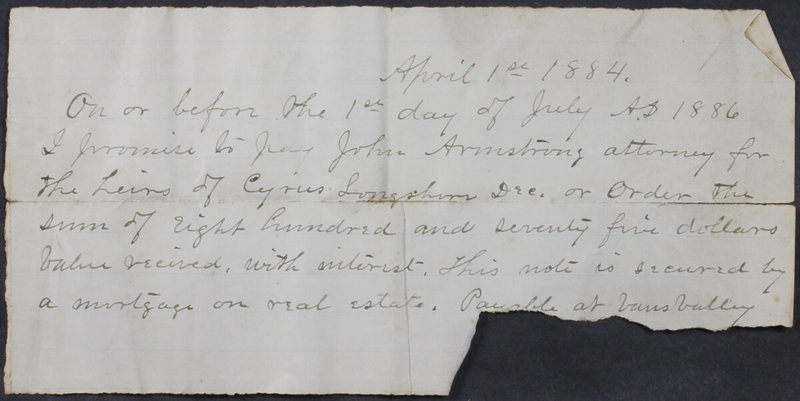 April 1st 1884.
On or before the 1st day of July A.D 1886
I promise to pay John Armstrong attorney for
the heirs of Cyrus Longshore Dec. or Order the
sum of Eight hundred and seventy five dollars
Value recived, with interest. This note is secured by
a mortgage on real estate. Payable at Vans Valley